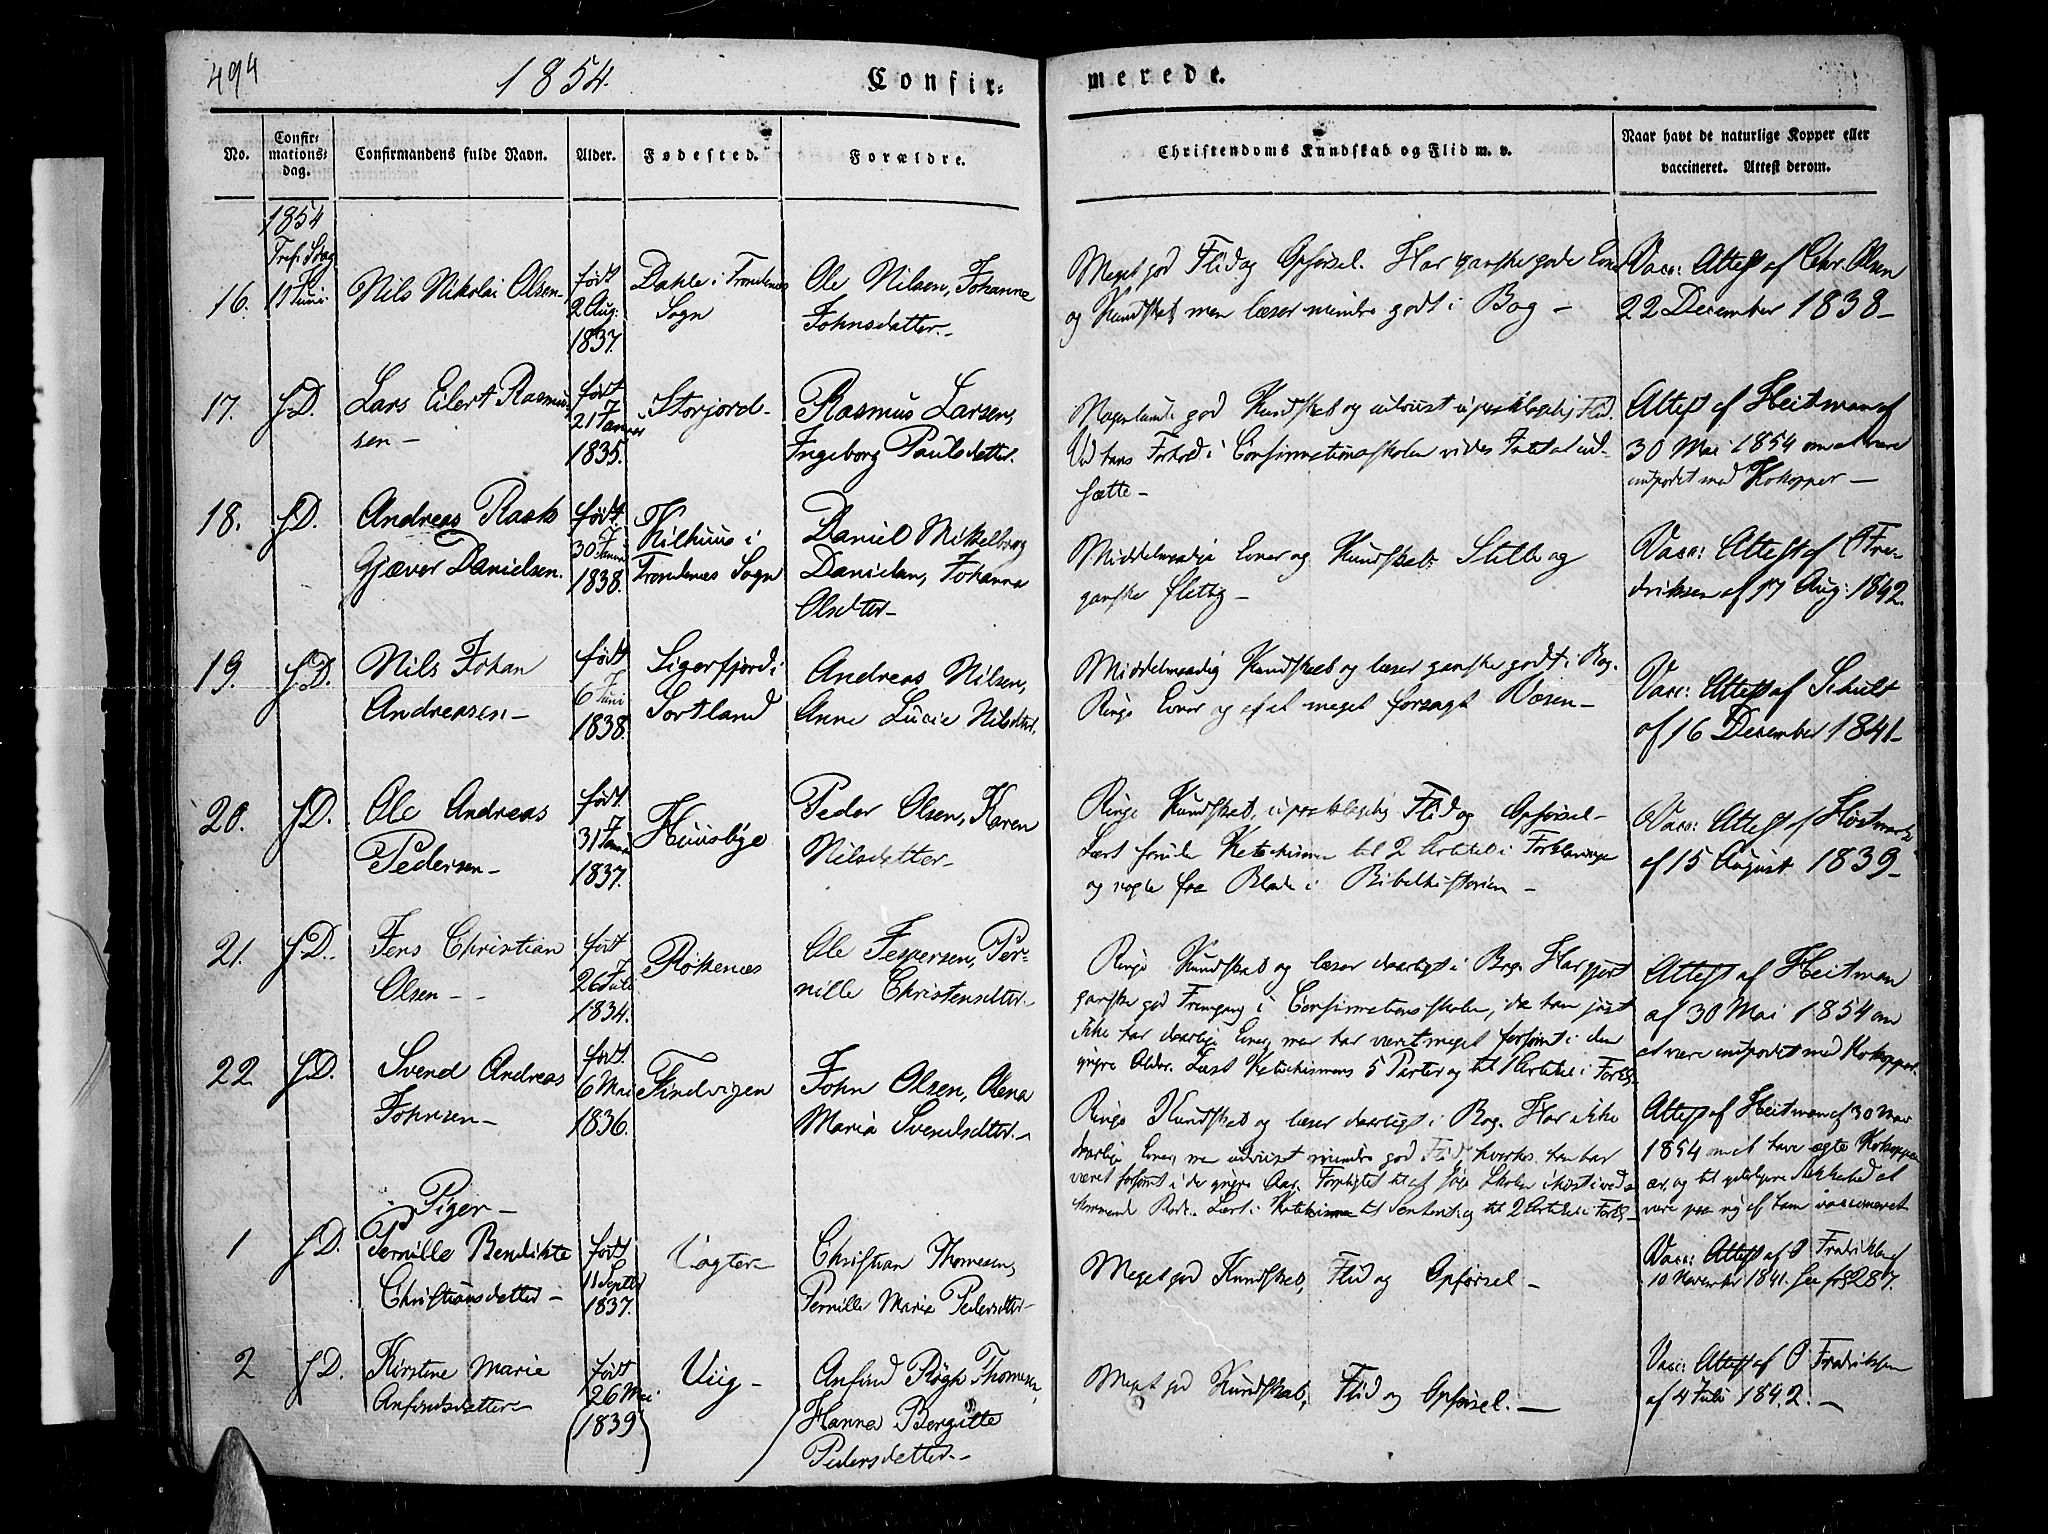 494
1854.
Confir=
merede.
No.
Confir=
mations=
dag.
Confirmandens fulde Navn.
Alder.
Fødested.
Forældre.
Christendoms Kundskab og Flid m. v.
Naar havt de naturlige Kopper eller
vaccineret. Attest derom.
1854
16.
11 Juni
Nils Nikolai Olsen
født
2 Aug:
1837.
Dahle i Trondenæs
Sogn
Ole Nilsen, Johanne
Johnsdatter
Meget god Flid og Opførsel. Har ganske gode Evner
og Kundskab men læser mindre godt i Bog –
Vacc: Attest af Chr. Olsen
22 December 1838 –
17.
S.D.
Lars Eilert Rasmus-
sen –
født
21 Januar
1835.
Storjord –
Rasmus Larsen,
Ingeborg Paulsdatter.
Nogenlunde god Kundskab og udviist upaaklagelig Flid.
Ved hans Forhold i Confirmationsskolen vides Intet at ud-
sætte –
Attest af Heitman af
30 Mai 1854 om at være
indpodet med Kokopper –
18.
S.D.
Andreas Rask
Gjæver Danielsen.
født
30 Januar
1838.
Kilhuus i
Trondenæs Sogn
Daniel Mikkelborg
Danielsen, Johanna
Olsdtter –
Middelmaadige Evner og Kundskab. Stille og
ganske flittig –
Vacc: Attest af Fre-
driksen af 17 Aug: 1842.
19.
S.D.
Nils Johan
Andreasen –
født
6 Juni
1838.
Sigerfjord i
Sortland
Andreas Nilsen,
Anne Lucie Nilsdtter.
Middelmaadig Kundskab og læser ganske godt i Bog.
Ringe Evner og af et meget forsagt Væsen –
Vacc: Attest af Schult
af 16 December 1841 –
20.
S.D.
Ole Andreas
Pedersen –
født
31 Januar
1837.
Huusbye
Peder Olsen, Karen
Nilsdatter –
Ringe Kundskab, upaaklagelig Flid og Opførsel –
Lært foruden Katechismen til 2 Artikel i Forklaringen
og nogle faa Blade i Bibelhistorien –
Vacc: Attest af Høstmark
af 15 August 1839 –
21.
S.D.
Jens Christian
Olsen –
født
26 Juli
1834.
Røkenæs
Ole Jespersen, Per-
nille Christensdtter –
Ringe Kundskab og læser daarligt i Bog. Har gjort
ganske god Fremgang i Confirmationsskolen, da han just
ikke har daarlige Evner, men har været meget forsømt i den
yngre Alder. Læst Katechismens 5 Parter og til 1 Artikel i Forkl.
Attest af Heitman
af 30 Mai 1854 om
at være indpodet med Kokopper.
22.
S.D.
Svend Andreas
Johnsen –
født
6 Mai
1836.
Sindvigen
John Olsen, Olena
Maria Svendsdtter –
Ringe Kundskab og læser daarligt i Bog. Har ikke
daarlige Evner, men udviist mindre god Flid,
været forsømt i de yngre Aar.
2 Artikel i Forkl –
Attest af Heitman af 30 Mai
1854 om at have ægte Kokoppe
ar, og til
være paa ny af ham vaccineret
Piger –
1
S.D.
Pernille Bendikte
Christiansdatter –
født
11 Septbr
1837.
Vogter
Christian Thomesen,
Pernille Marie Pedersdtter –
Meget god Kundskab, Flid og Opførsel –
Vacc: Attest af Fredriksen af
10 November 1841.
2
S.D.
Kirstine Marie
Anfindsdatter –
født
26 Mai
(1839)
Viig –
Anfind Røgh Thomesen,
Hanna Bergitte
Pedersdatter –
Meget god Kundskab, Flid og Opførsel. –
Vacc: Attest af P Fredriksen
af 4 Juli 1842. –